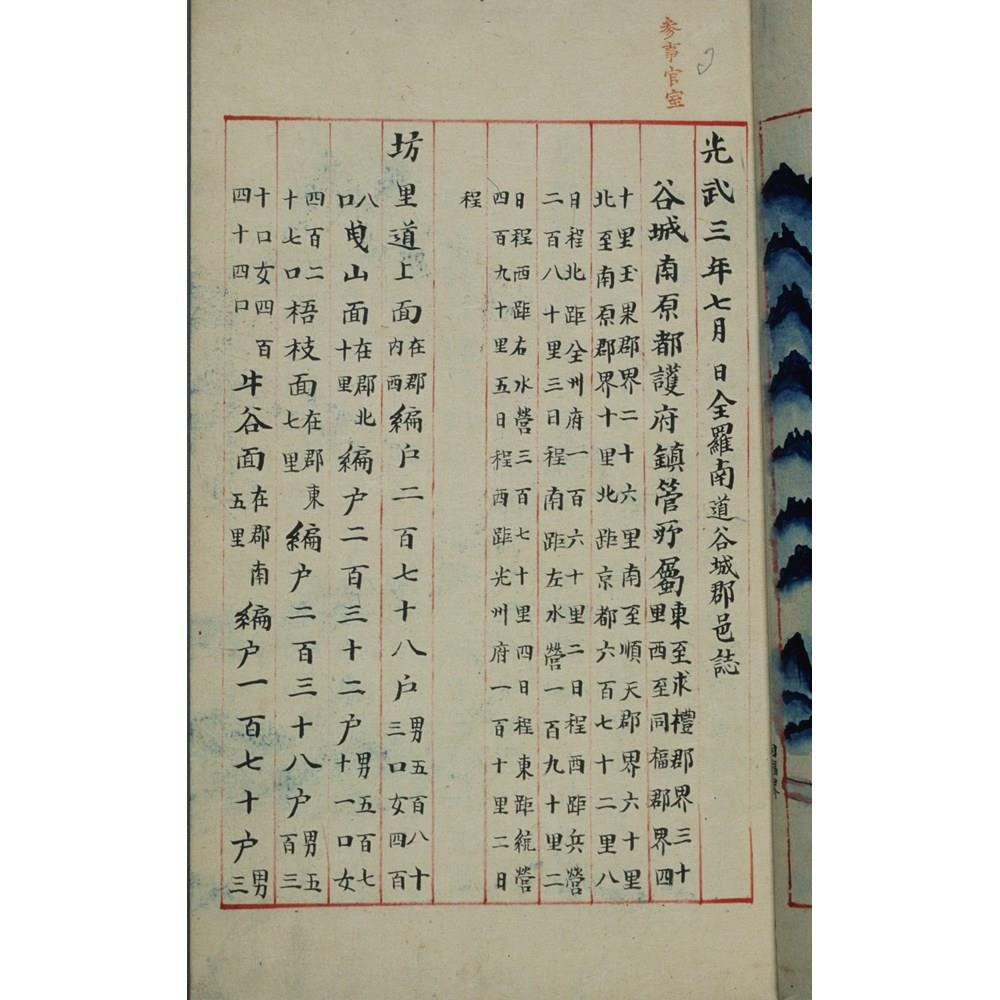 參事官室
光武三年七月 日全羅南道谷城郡邑誌
谷城南原都護府鎭管所屬東至求禮郡界三十里西至同福郡界四
十里玉果郡界二十六里南至順天郡界六十里北至南原郡界十里北距京都六百七十二里八
日程北距全州府一百六十里二日程西距兵營二百八十里三日程南距左水營一百九十里二
日程西距右水營三百七十里四日程東距統營四百九十里五日程西距光州府一百十里二日
程
坊里道上面在郡內西編户二百七十八户男五百八十三口女四百
八口曳山面在郡北十里編户二百三十二户男五百七十一口女
四百二十七口梧枝面在郡東七里編户二百三十八户男五百三
十口女四百四十四口牛谷面在郡南五里編户一百七十户男三